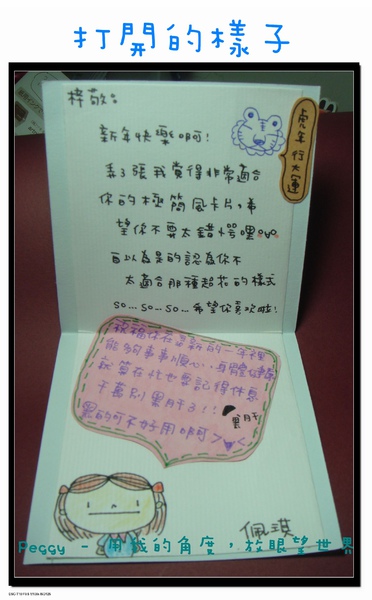 打開的樣子
梓敬:
新年快樂啊!
弄了張我覺得非常適合
你的極簡風卡片,希
望你不要太錯愕哩
自以為是的認為你不
太適合那種超花的樣式
so...so...so...希望你喜歡啦!
虎年行大運
祝福你在嶄新的一年裡
能夠事事順心、身體健康
就算在忙也要記得休息
千萬別黑肝了!!
黑肝
黑的可不好用啊
佩琪
Peggy - 用我的角度,放眼望世界